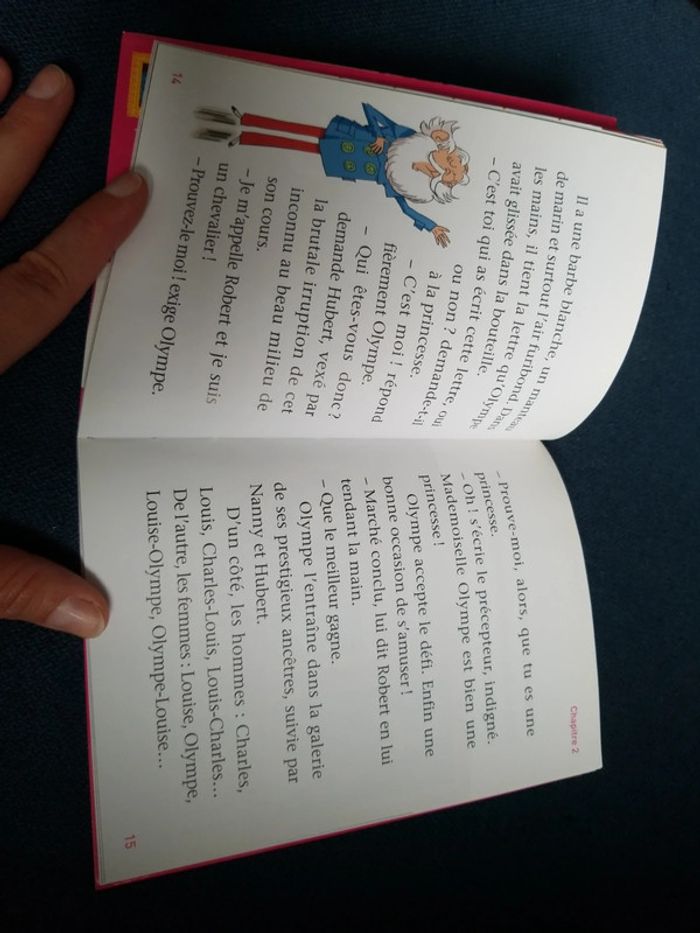 Il a une barbe blanche, un manteau
de marin et surtout l'air furibond. Dans
les mains, il tient la lettre qu'Olympe
avait glissée dans la bouteille.
– C'est toi qui as écrit cette lettre, oui
ou non ? demande-t-il
à la princesse.
– C'est moi ! répond
fièrement Olympe.
– Qui êtes-vous donc ?
demande Hubert, vexé par
la brutale irruption de cet
inconnu au beau milieu de
son cours.
– Je m'appelle Robert et je suis
un chevalier !
– Prouvez-le moi ! exige Olympe.
14
Chapitre 2
– Prouve-moi, alors, que tu es une
princesse.
– Oh ! s'écrie le précepteur, indigné.
Mademoiselle Olympe est bien une
princesse !
Olympe accepte le défi. Enfin une
bonne occasion de s'amuser !
– Marché conclu, lui dit Robert en lui
tendant la main.
– Que le meilleur gagne.
Olympe l'entraîne dans la galerie
de ses prestigieux ancêtres, suivie par
Nanny et Hubert.
D'un côté, les hommes : Charles,
Louis, Charles-Louis, Louis-Charles...
De l'autre, les femmes : Louise, Olympe,
Louise-Olympe, Olympe-Louise...
15